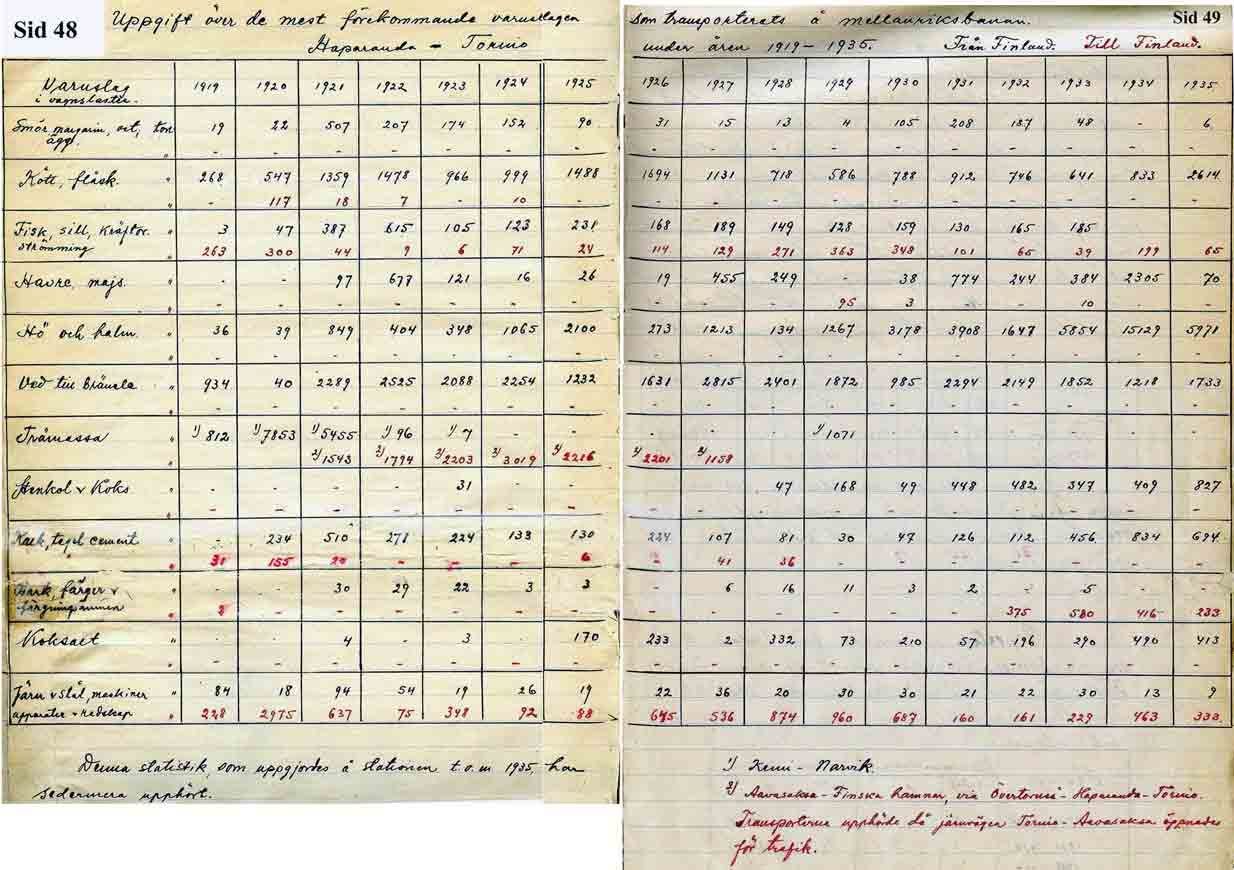 Sid 48
Uppgift över de mest förekommande varuslagen
Haparanda - Torneo
som transporterats å mellanriksbanan.
Sid 49
under åren 1919 - 1935. Från Finland. Till Finland.
Varuslag i vagnslaster. 1919 1920 1921 1922 1923 1924 1925 1926 1927 1928 1929 1930 1931 1932 1933 1934 1935
Smör, margarin, ost, ton 19 22 507 207 174 152 90 31 15 13 4 105 208 187 48 - 6
ägg. " - - - - - - - - - - - - - - - - -
Kött, fläsk. " 268 547 1359 1478 966 999 1488 1694 1131 718 586 788 912 746 641 833 2614
" - 117 18 7 - 10 - - - - - - - - - - -
Fisk, sill, kräftor. " 3 47 387 615 105 123 231 168 189 149 128 159 130 165 185
strömming " 263 300 44 9 6 71 24 114 129 271 363 348 101 65 39 199 65
Havre, majs. " - - 97 677 121 16 26 19 455 249 - 38 774 244 384 2305 70
" - - - - - - - - - - 95 3 - - 10 - -
Hö och halm. " 36 39 849 404 348 1065 2100 273 1213 134 1267 3178 3908 1647 5854 15129 5971
" - - - - - - - - - - - - - - - - -
Ved till bränsle " 934 40 2289 2525 2088 2254 1232 1631 2815 2401 1872 985 2294 2149 1852 1218 1733
" - - - - - - - - - - - - - - - - -
Trämassa " 1/ 812 1/ 7853 1/ 5455 1/ 96 1/ 7 - - - - - 1/ 1071 - - - - - -
" 2/ 1543 2/ 1794 2/ 2203 2/ 3019 2/ 2216 2/ 2201 2/ 1158
Stenkol & Koks " - - - - 31 - - - - 47 168 49 448 482 347 409 827
" - - - - - - - - - - - - - - - - -
Kalk, tegel cement " - 234 510 278 224 133 130 224 107 81 30 47 126 112 456 834 694
" 31 155 20 - - - 6 - 41 36 - - - - - - -
Bark, färger & " - - 30 29 22 3 3 - 6 16 11 3 2 - 5 - -
färgningsämnen " 2 - - - - - - - - - - - - 375 580 416 233
Koksalt " - - 4 - 3 - 170 233 2 332 73 210 57 196 290 490 413
" - - - - - - - - - - - - - - - - -
Järn & stål, maskiner " 84 18 94 54 19 26 19 22 36 20 30 30 21 22 30 13 9
apparater & redskap " 228 2975 637 75 348 92 88 645 536 874 960 687 160 161 229 463 333
Denna statistik, som uppgjordes å stationen t.o.m 1935, har
sedermera upphört.
1/ Kemi - Narvik.
2/ Aavasaksa - Finska hamnar, via Övertorneå - Haparanda - Torneo.
Transporterna upphörde då järnvägen Tornio - Aavasaksa öppnades
för trafik.